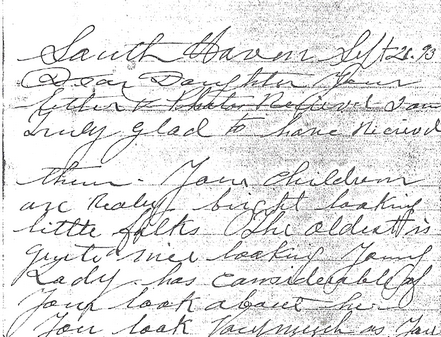 South Haven Sept 28. 93
Dear Daughter Your
letter & Photos Recieved I am
truly glad to have recieved
them - Your children
are Realy bright looking
little folks The oldest is
quite a nice looking Young
Lady - has considerable of
Your look about her
You look very much as You